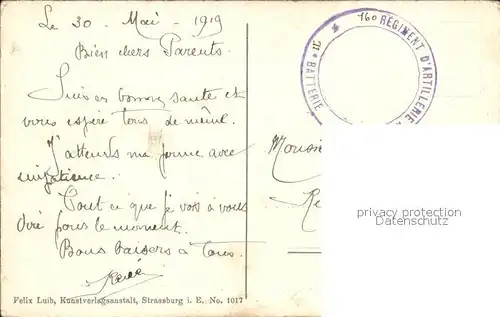 Le 30 Mai 1919
Bien chers Parents.
Suis en bonne santé et
vous espère tous de même.
J'attends ma perme avec
impatience.
Tout ce que je vois à vous
dire pour le moment.
Bons baisers à tous.
René
Felix Luib, Kunstverlagsanstalt, Strassburg i. E. No. 1017
160 RÉGIMENT D'ARTILLERIE
BATTERIE
privacy protection
watermark